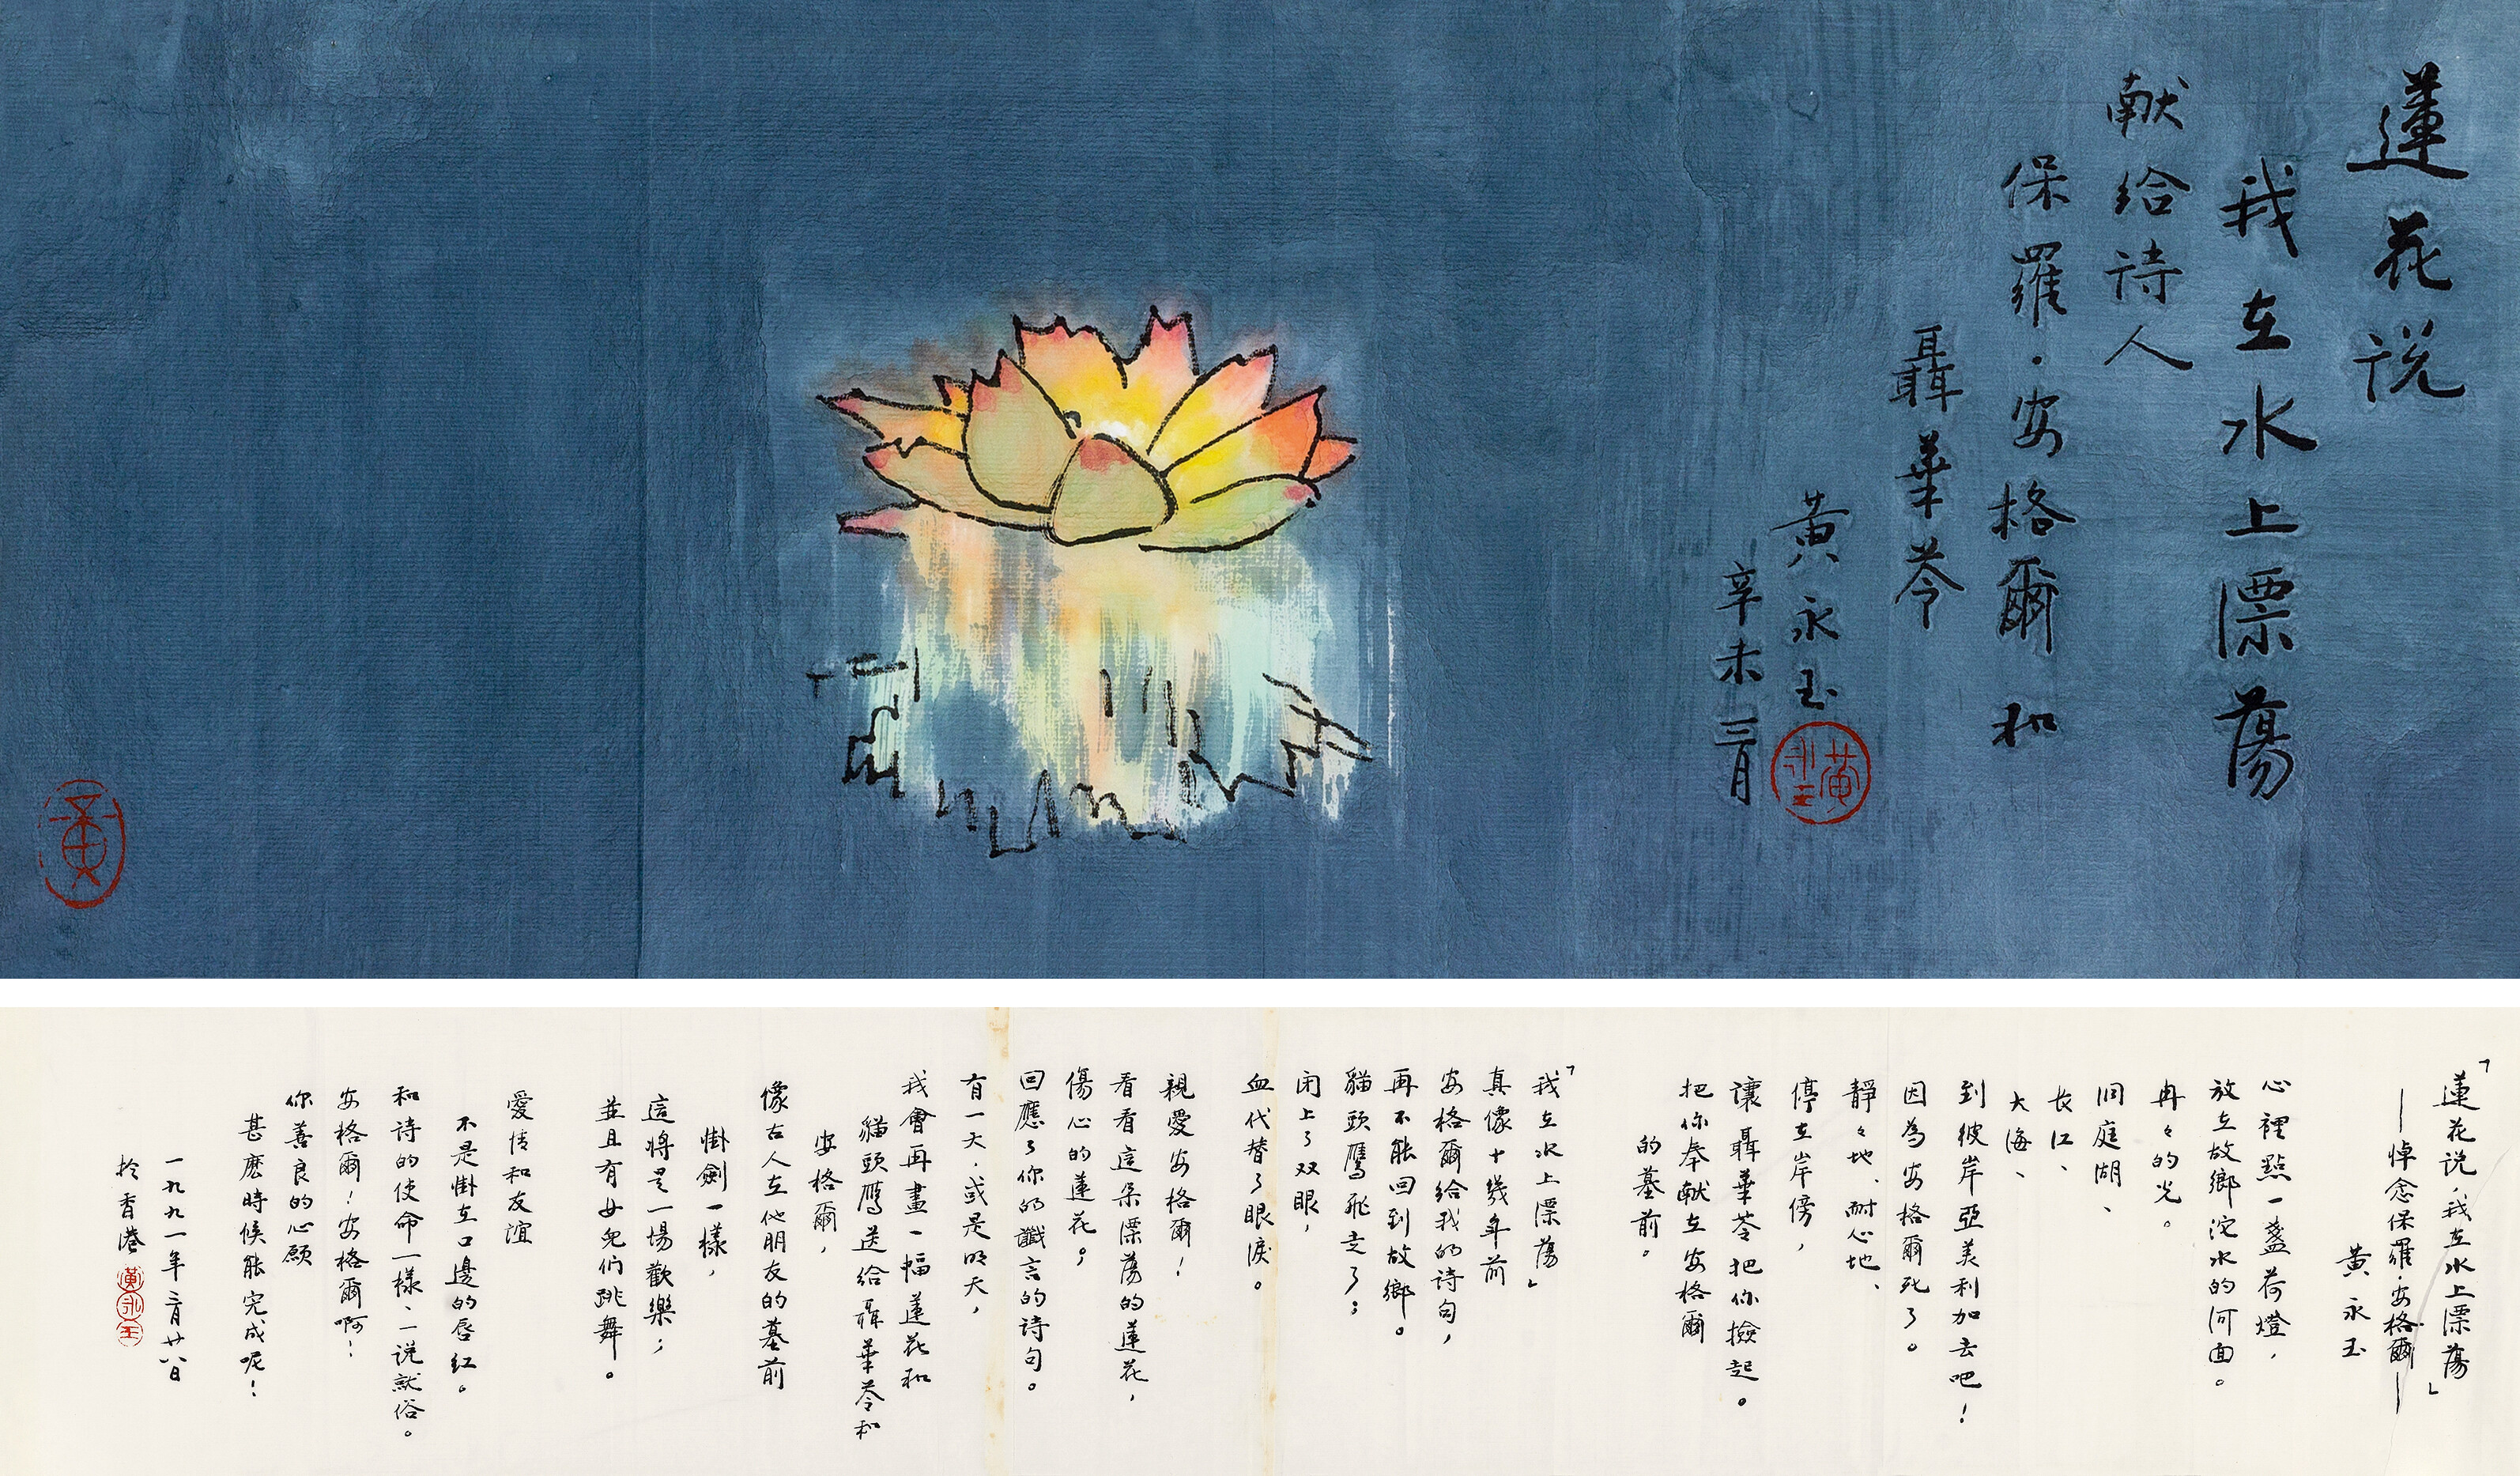 蓮花说
我在水上漂蕩
献给诗人
保羅·安格爾和
聶華苓
黄永玉
辛未三月
黄永玉
黄
「蓮花说，我在水上漂蕩」
——悼念保羅·安格爾——
黄永玉
心裡點一盞荷燈，
放在故鄉沱水的河面。
冉々的光。
洞庭湖、
长江、
大海、
到彼岸亞美利加去吧！
因為安格爾死了。
靜々地、耐心地、
停在岸傍，
讓聶華苓把你撿起。
把你奉献在安格爾
的墓前。
「我在水上漂蕩」
真像十幾年前
安格爾给我的诗句，
再不能回到故鄉。
貓頭鷹飛走了；
闭上了双眼，
血代替了眼淚。
親愛安格爾！
看看這朵漂蕩的蓮花，
傷心的蓮花。；
回應了你的讖言的诗句。
有一天．或是明天，
我會再畫一幅蓮花和
貓頭鷹送给聶華苓和
安格爾，
像古人在他朋友的墓前
掛劍一樣，
這将是一場歡樂；
並且有女兒们跳舞。
愛情和友谊
不是掛在口邊的唇红。
和诗的使命一樣、一说就俗。
安格爾！安格爾啊！
你善良的心願
甚麽時候能完成呢！
一九九一年三月廿八日
於香港
黄永玉